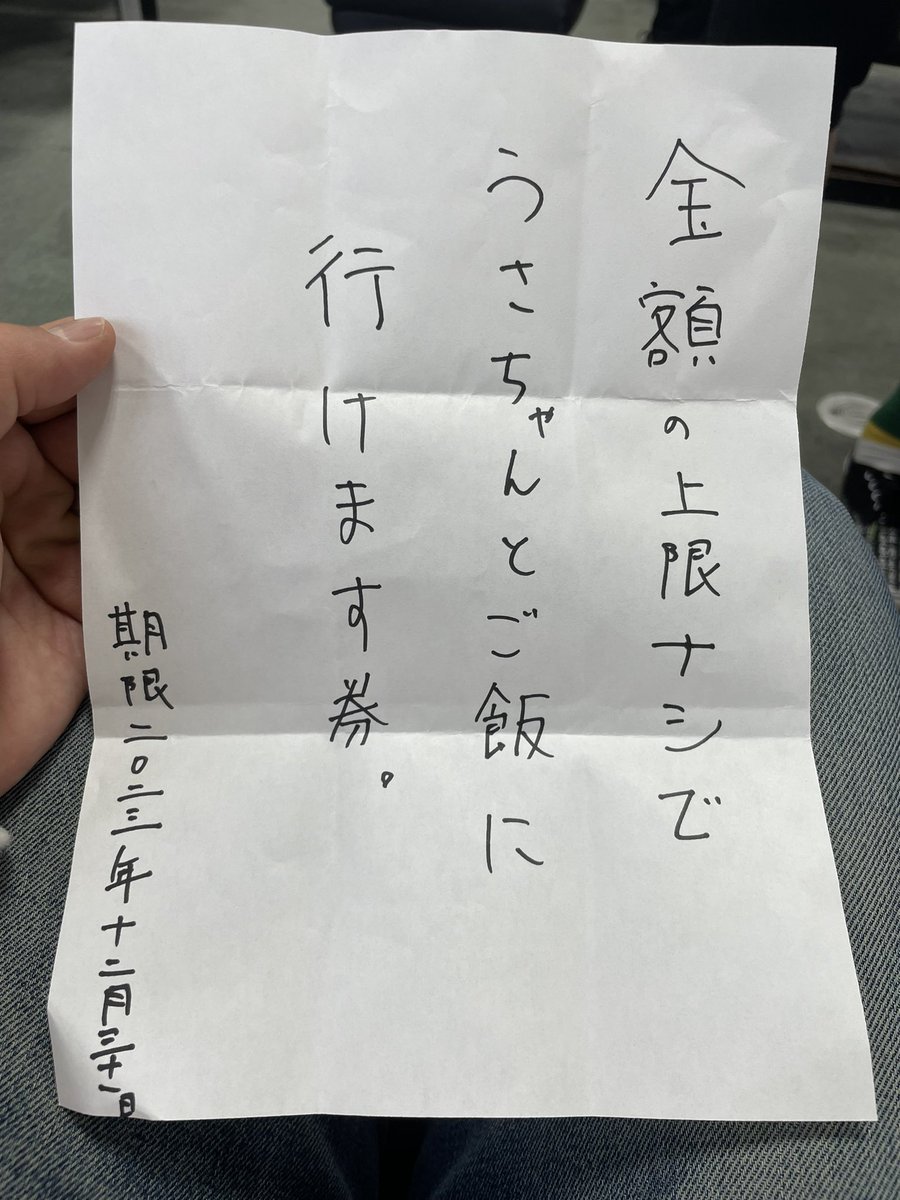 金額の上限ナシで
うさちゃんとご飯に
行けます券。
期限二〇二三年十二月三十一日